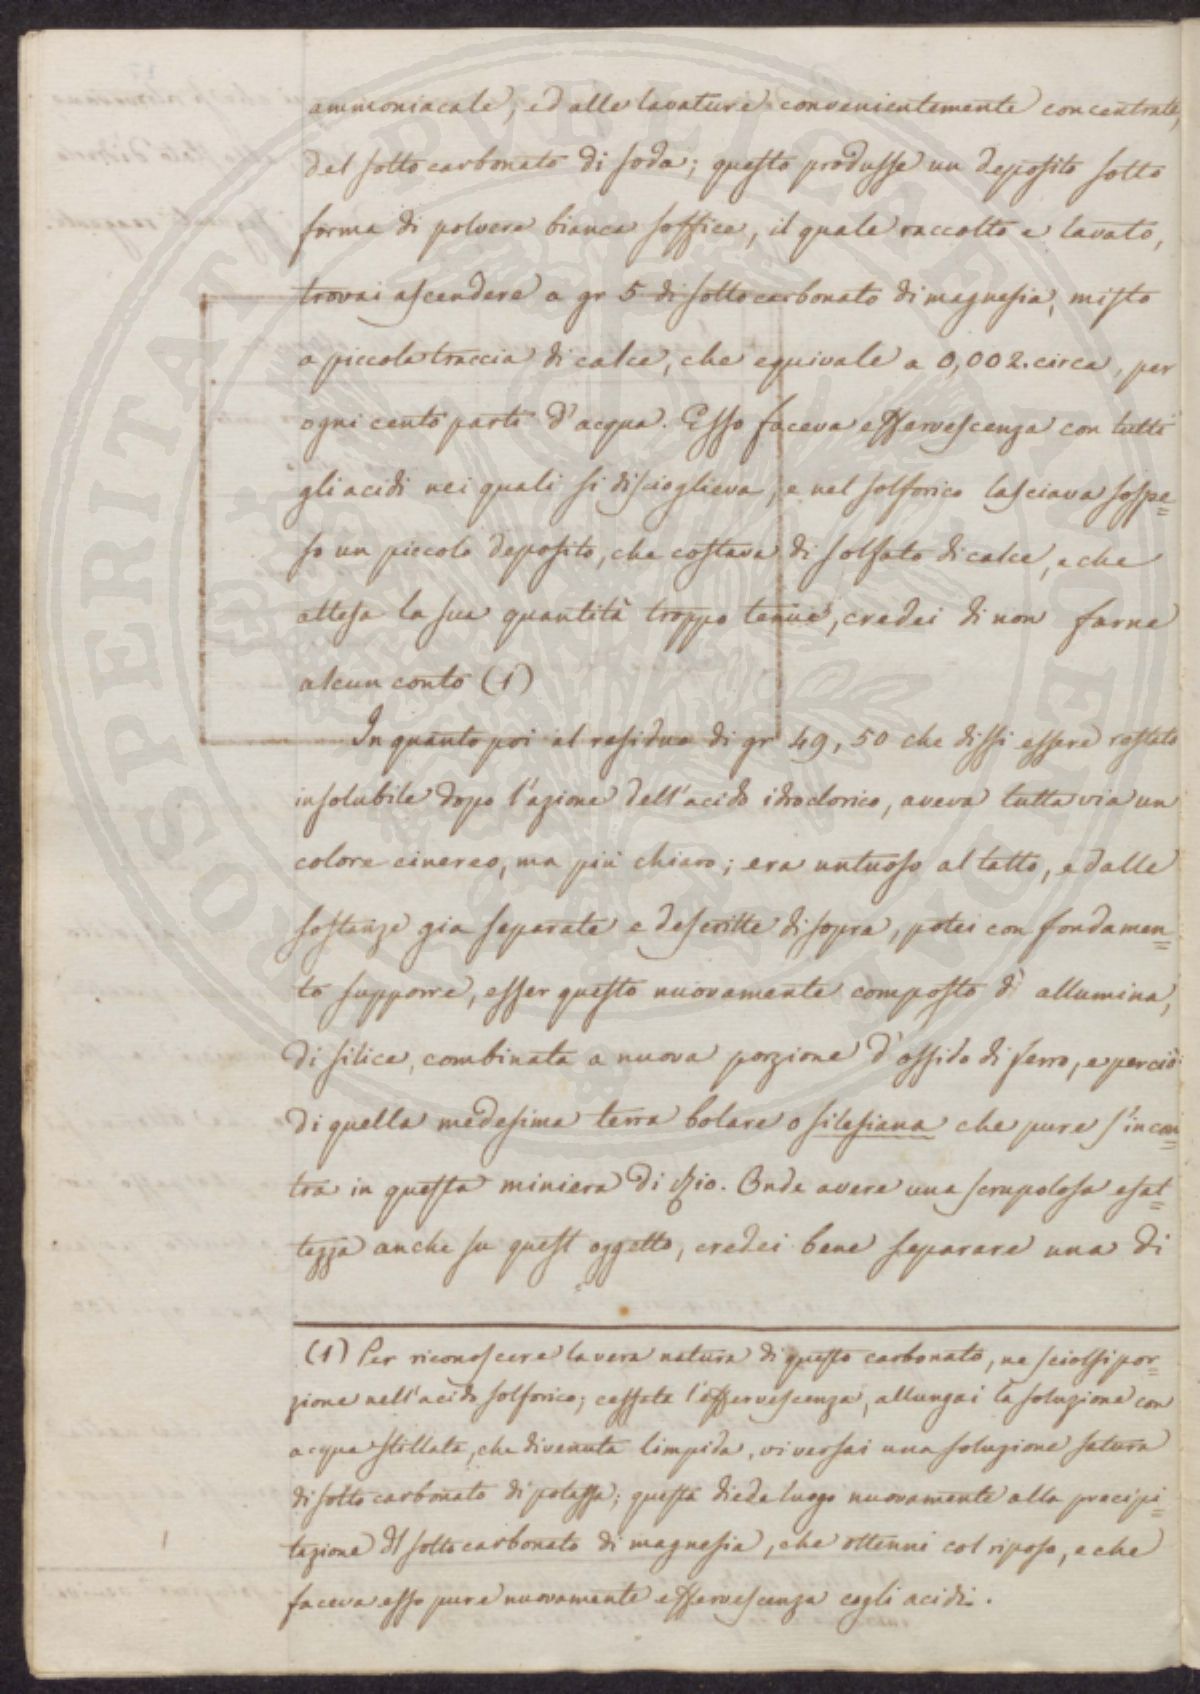 ammoniacale, ed alle lavature convenientemente concentrate,
del sotto carbonato di soda; questo produsse un deposito sotto
forma di polvere bianca soffice, il quale raccolto e lavato,
trovai ascendere a gr 5 di sotto carbonato di magnesia, misto
a piccola traccia di calce, che equivale a 0,002. circa, per
ogni cento parti d'acqua. Esso faceva effervescenza con tutti
gli acidi nei quali si discioglieva, e nel solforico lasciava sospe=
so un piccolo deposito, che costava di solfato di calce, e che
attesa la sua quantità troppo tenue, credei di non farne
alcun conto (1)
In quanto poi al residuo di gr 49,50 che dissi essere restato
insolubile dopo l'azione dell'acido idroclorico, aveva tutta via un
colore cinereo, ma più chiaro; era untuoso al tatto, e dalle
sostanze gia separate e descritte di sopra, potei con fondamen=
to supporre, esser questo nuovamente composto d' allumina,
di silice, combinata a nuova porzione d'ossido di ferro, e perciò
di quella medesima terra bolare o silesiana che pure s'incon=
tra in questa miniera di Rio. Onde avere una scrupolosa esat=
tezza anche su quest oggetto, credei bene separare una di
(1) Per riconoscere la vera natura di questo carbonato, ne sciolsi por=
zione nell'acido solforico; cessata l'effervescenza, allungai la soluzione con
acqua stillata, che divenuta limpida, vi versai una soluzione satura
di sotto carbonato di potassa; questa diede luogo nuovamente alla precipi=
tazione del sotto carbonato di magnesia, che ottenni col riposo, e che
faceva esso pure nuovamente effervescenza cogli acidi.
PROSPERITATI PUBLICAE